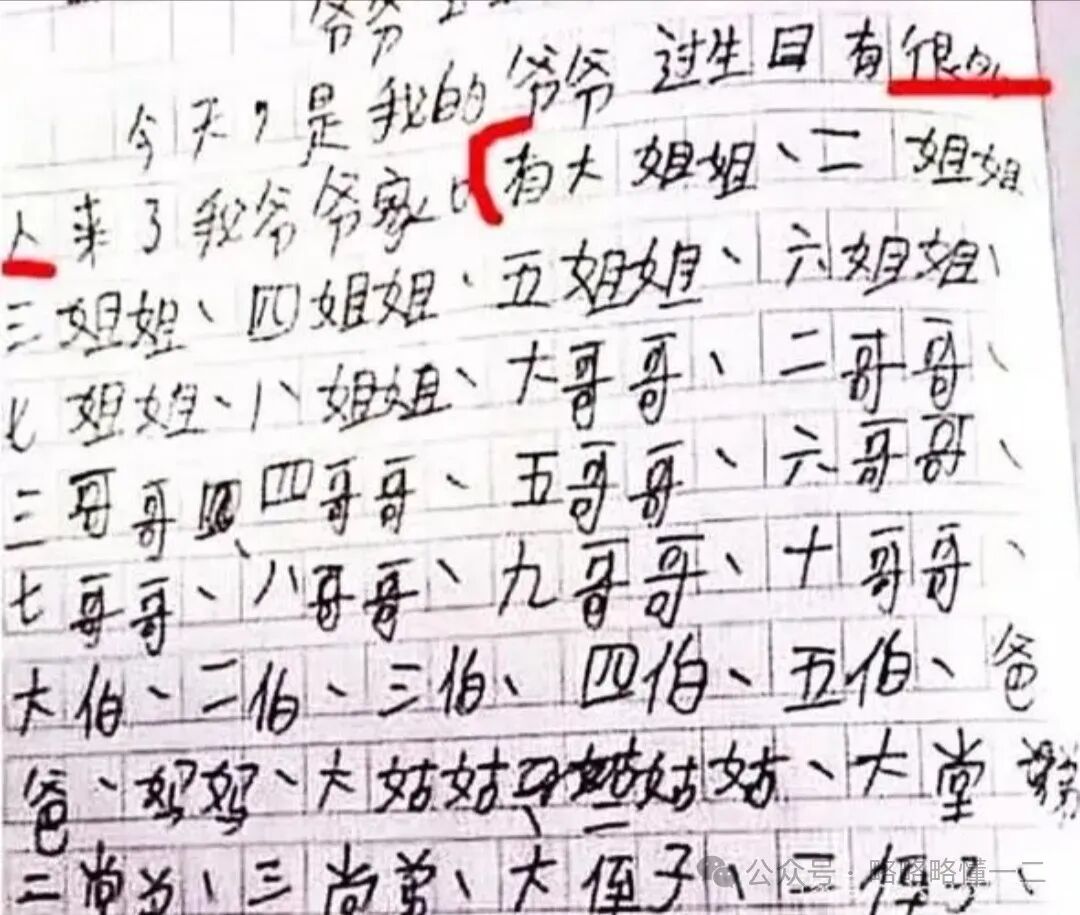 爷爷
今天,是我的爷爷过生日有很多
人来了我爷爷家。有大姐姐、二姐姐
三姐姐、四姐姐、五姐姐、六姐姐、
七姐姐、八姐姐、大哥哥、二哥哥、
三哥哥、四哥哥、五哥哥、六哥哥、
七哥哥、八哥哥、九哥哥、十哥哥、
大伯、二伯、三伯、四伯、五伯、爸
爸、妈妈、大姑姑、二姑姑、大堂弟
二尚弟、三尚弟、大侄子、二侄子、
公众号:略略略懂一二